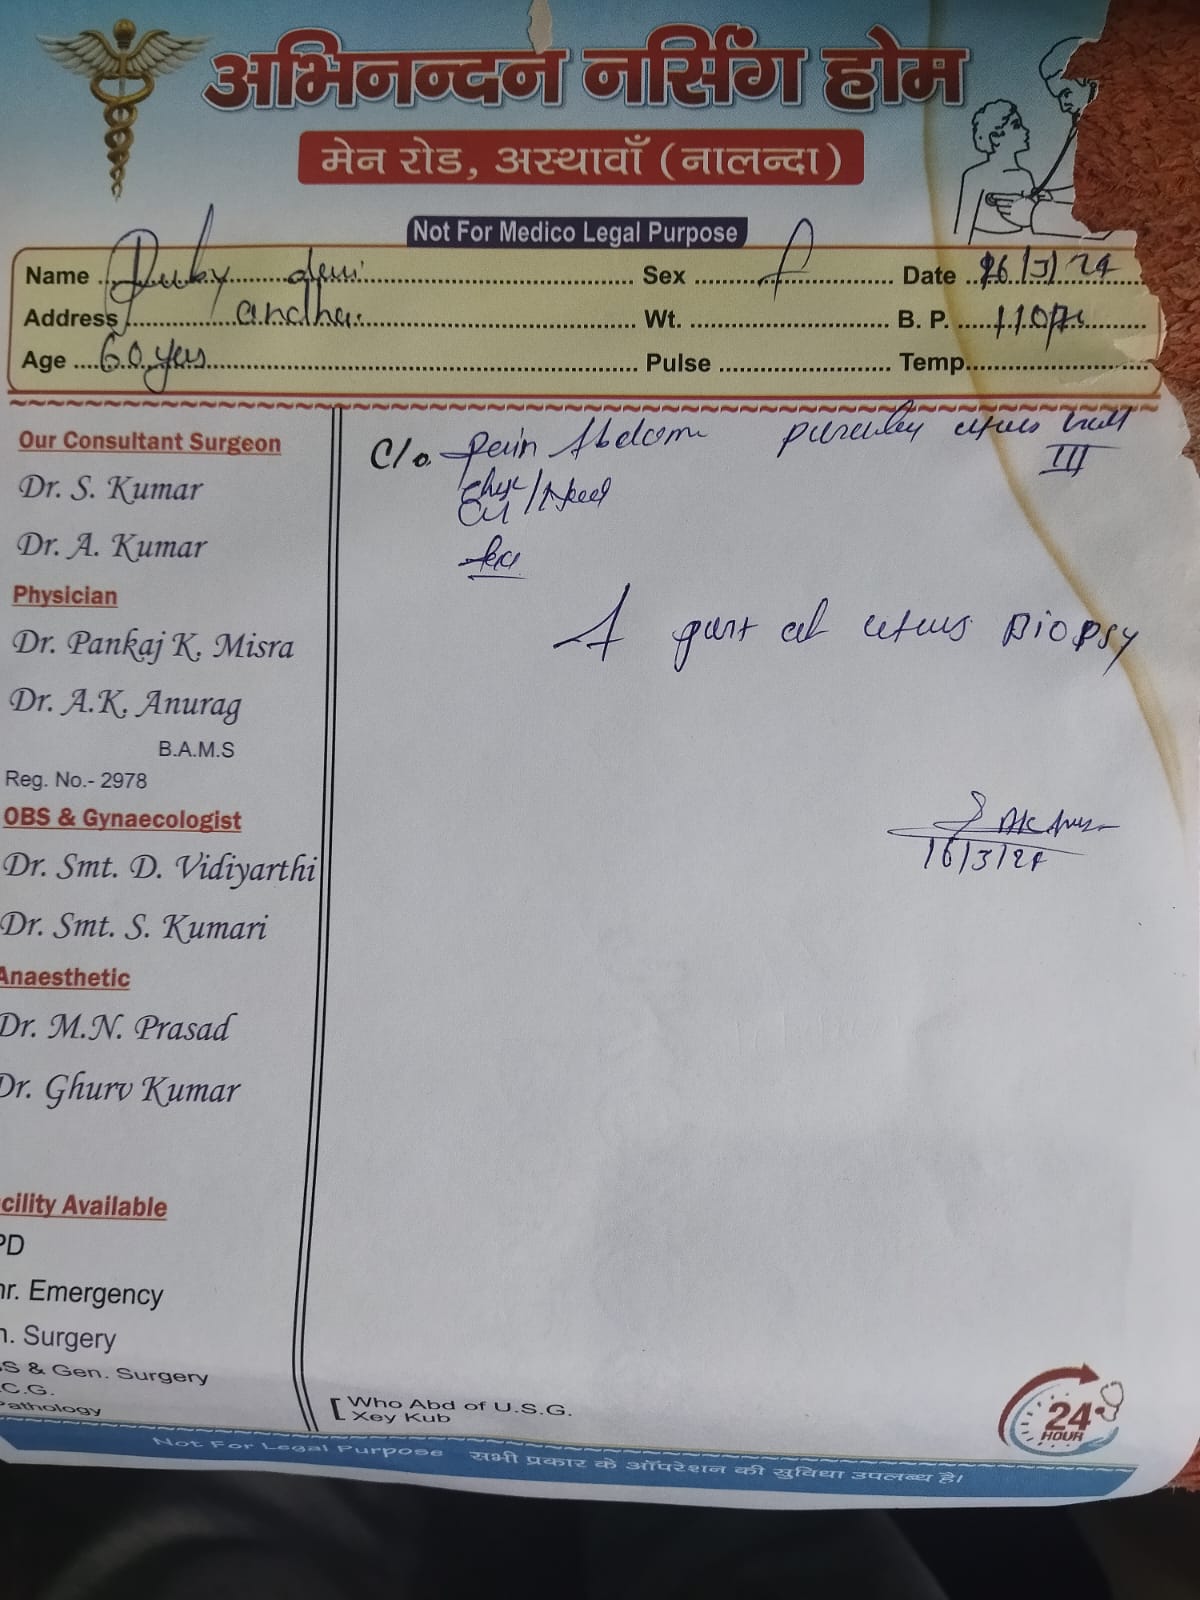 अभिनन्दन नर्सिंग होम
मेन रोड, अस्थावाँ (नालन्दा)
Not For Medico Legal Purpose
Name Ruby devi Sex F Date 16/3/24
Address andhar Wt. B. P. 110/70
Age 60 yers Pulse Temp
Our Consultant Surgeon
Dr. S. Kumar
Dr. A. Kumar
Physician
Dr. Pankaj K. Misra
Dr. A.K. Anurag
B.A.M.S
Reg. No.- 2978
OBS & Gynaecologist
Dr. Smt. D. Vidiyarthi
Dr. Smt. S. Kumari
Anaesthetic
Dr. M.N. Prasad
Dr. Ghurv Kumar
cility Available
PD
hr. Emergency
n. Surgery
S & Gen. Surgery
C.G.
Pathology
C/o. Pain Abdom uterus
III
uterus Biopsy
16/3/24
Who Abd of U.S.G.
Xey Kub
24
HOUR
Not For Legal Purpose सभी प्रकार के ऑपरेशन की सुविधा उपलब्ध है।